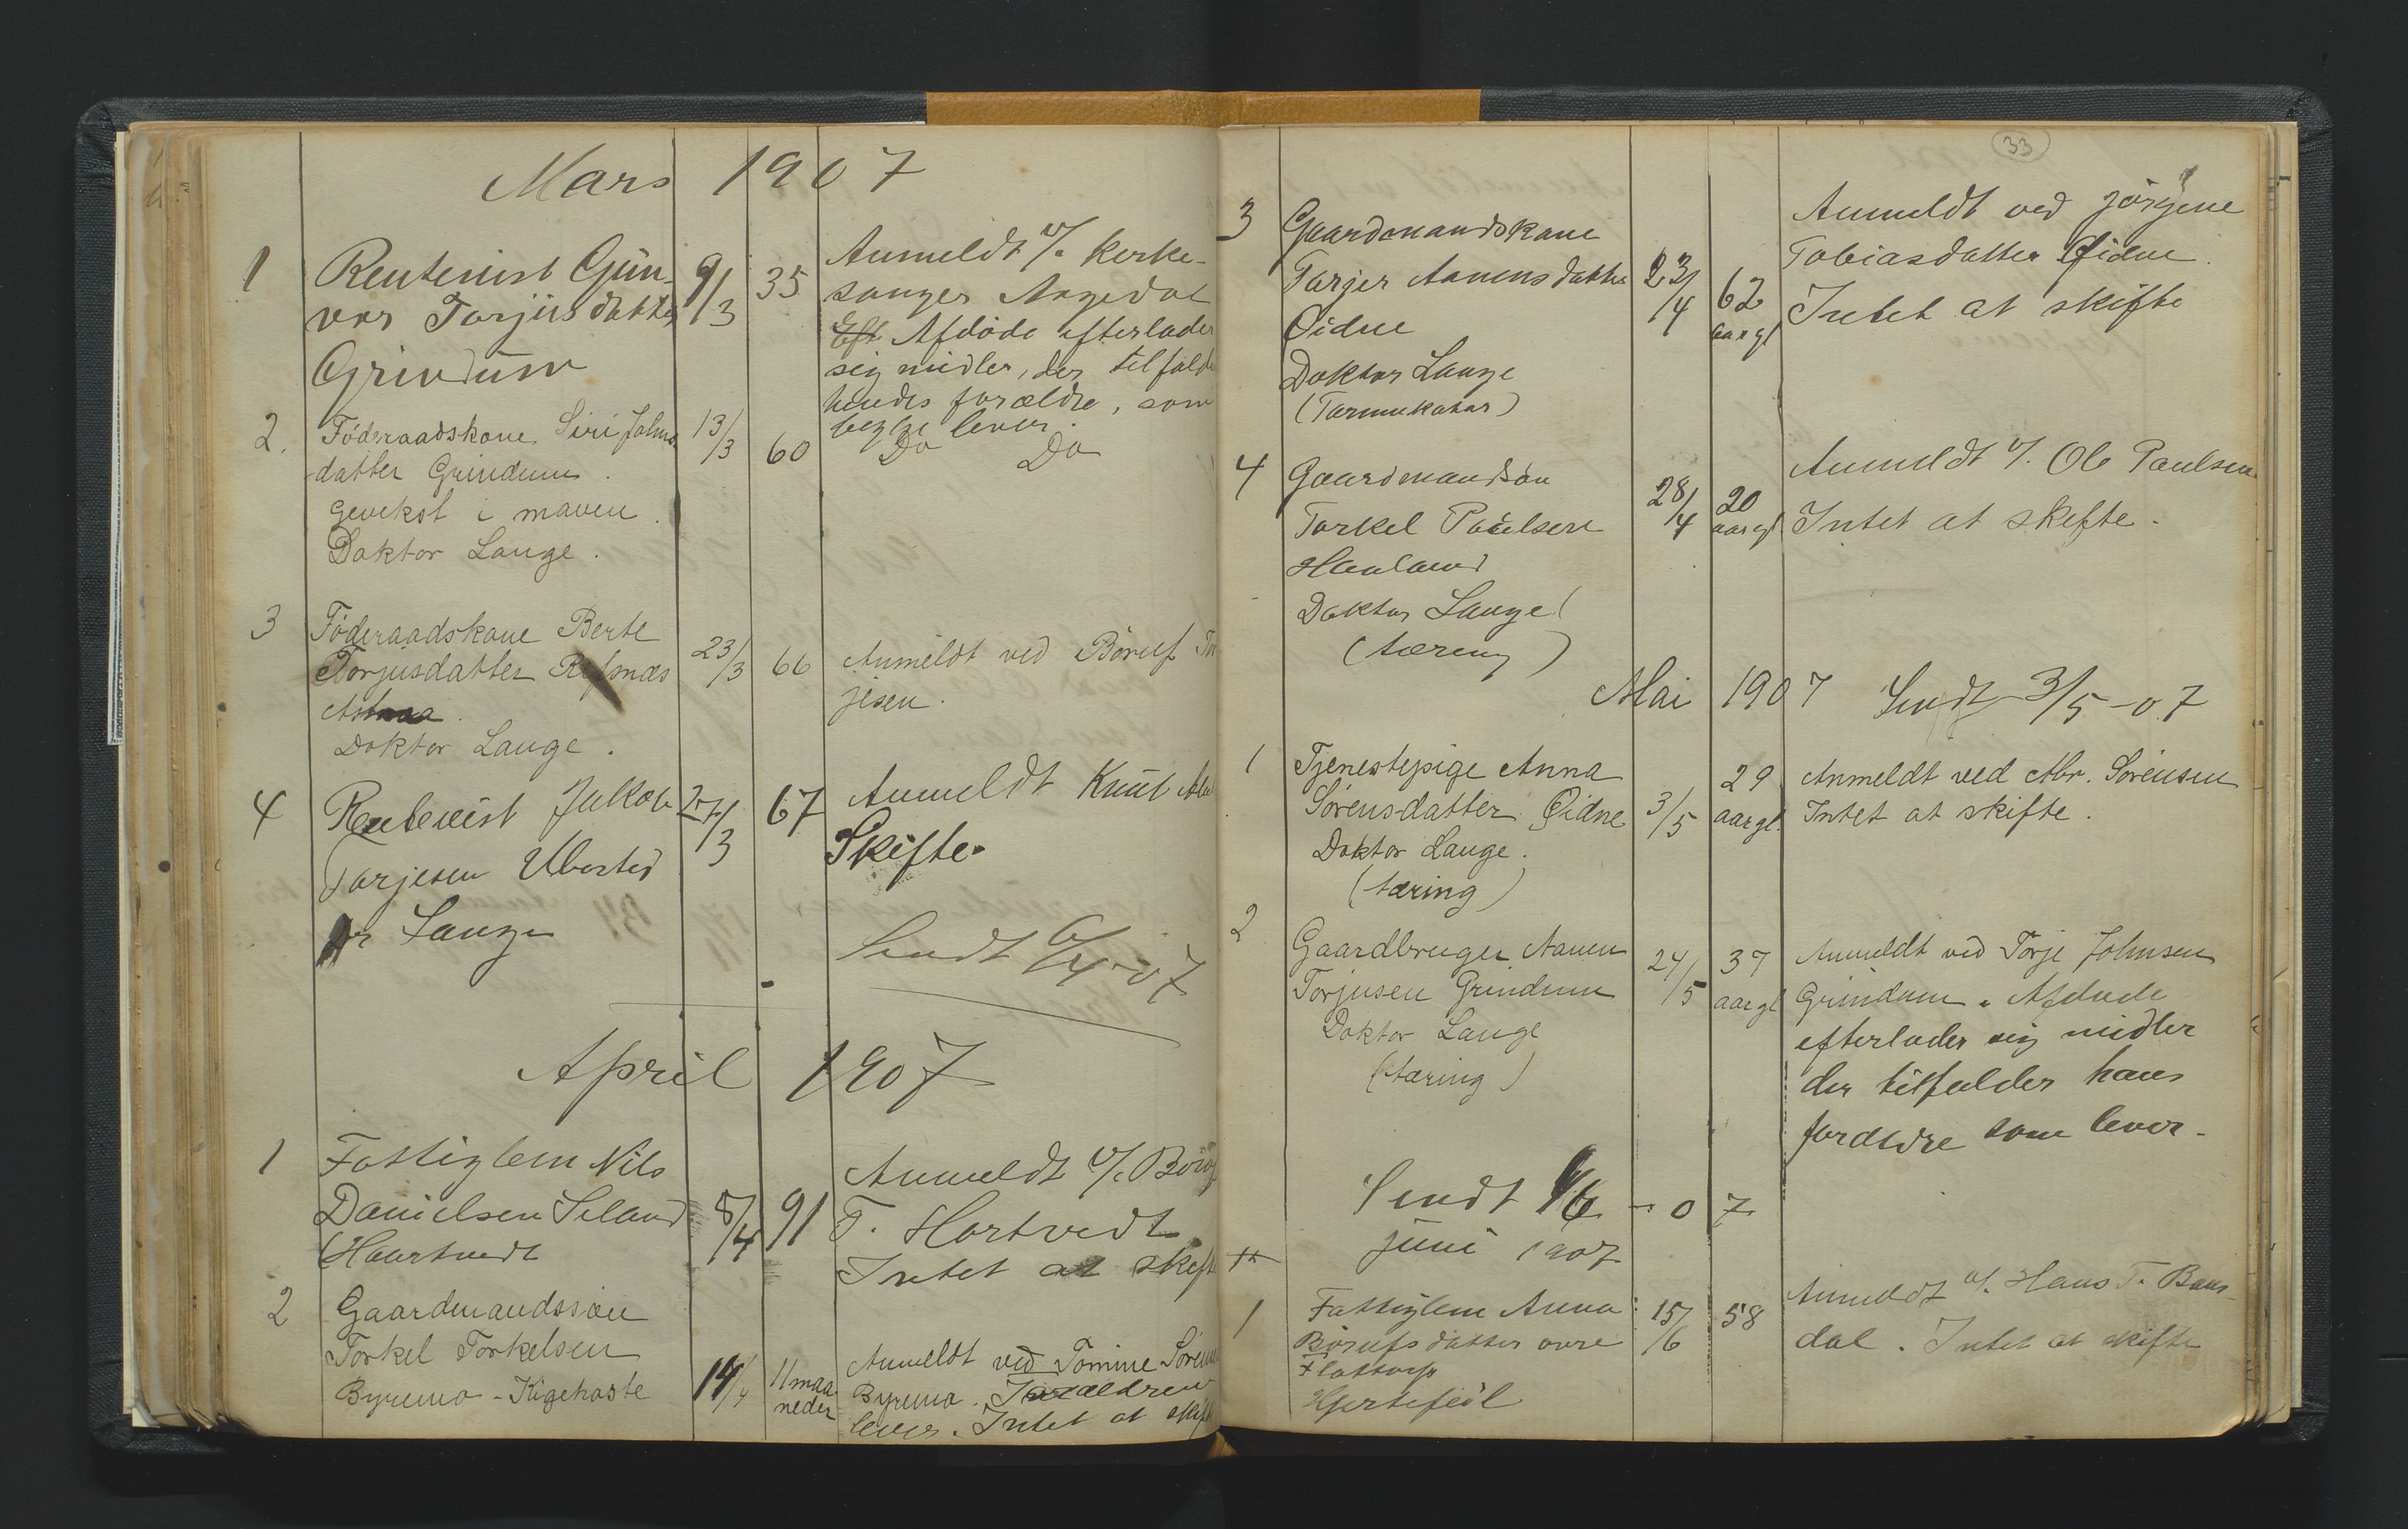 Mars 1907
1 Rentenist Gun-
vor Torjusdatter 9/3 35
Grindum
Anmeldt v/. Kirke-
sanger Aagedal
Eft. Afdøde efterlader
sig midler, der tilfalde
hendes forældre, som
begge lever.
2. Föderaadskone Siri Johns- 13/3 60 Do Do
datter Grindum.
Gevekst i maven.
Doktor Lange.
3 Föderaadskone Berte
Torjusdatter Refsnæs 23/3 66 Anmeldt ved Börulf
jesen.
Doktor Lange.
4 Rentenist Jakob 27/3 67 Anmeldt Knut
Tarjesen Ubostad Skifte.
Dr Lange
Sendt 6/4-07
April 1907
1 Fattiglem Nils
Danielsen Seland 8/4 91
(Haartvedt
Anmeldt v/.
T. Hortvedt
Intet at skift
2 Gaardmandssøn
Torkel Torkelsen
Byremo - Kigehoste 14/4 11 maa-
neder
Anmeldt ved Tomine
Byremo. Forældrene
lever. Intet at skift
33
3 Gaardmandskone
Tarjer Aanensdatter 23/4 62
aar gl
Øidne
Doktor Lange
(Tarmukatar)
Anmeldt ved Jörgine
Tobiasdatter Øidne.
Intet at skifte
4 Gaardmandsøn
Torkel Paulsen 28/4 20
aar gl
Haaland
Doktor Lange
(tæring)
Anmeldt v/. Ole Paulsen
Intet at skifte.
Mai 1907 Sendt 3/5-07
1 Tjenestepige Anna
Sörensdatter Øidne 3/5 29
aar gl.
Doktor Lange.
(tæring)
Anmeldt ved Abr. Sörensen
Intet at skifte.
2 Gaardbruger Aanen
Torjusen Grindum 24/5 37
aar gl
Doktor Lange
(tæring)
Anmeldt ved Torje Johnsen
Grindum. Afdøde
efterlader sig midler
der tilfalder hans
forældre som lever.
Sendt 1/6 - 07
juni 1907
1 Fattiglem Anna 15/6 58
Börufsdatter øvre
Flottorp
Hjertefeil
Anmeldt v/. Hans T. Baas-
dal. Intet at skifte